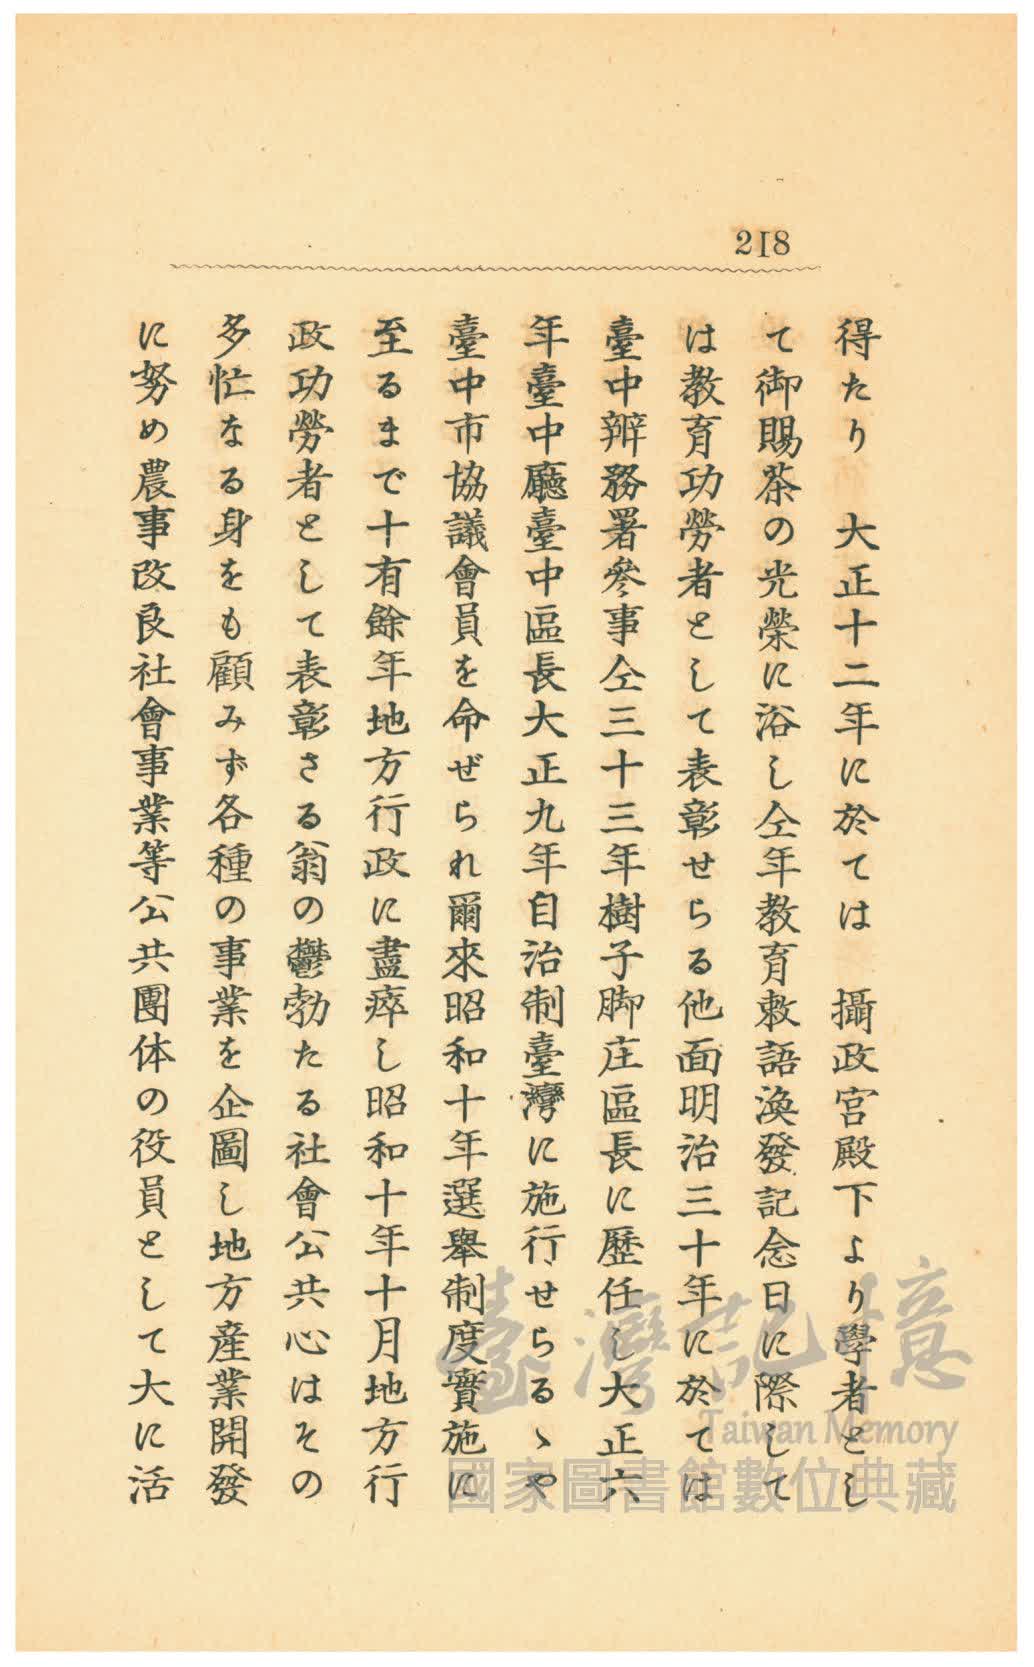 218
得たり　大正十二年に於ては　攝政宮殿下より學者とし
て御賜茶の光榮に浴し仝年教育敕語渙發記念日に際して
は教育功勞者として表彰せらる他面明治三十年に於ては
臺中辨務署參事仝三十三年樹子脚庄區長に歷任し大正六
年臺中廳臺中區長大正九年自治制臺灣に施行せらるゝや
臺中市協議會員を命ぜられ爾來昭和十年選舉制度實施に
至るまで十有餘年地方行政に盡瘁し昭和十年十月地方行
政功勞者として表彰さる翁の鬱勃たる社會公共心はその
多忙なる身をも顧みず各種の事業を企圖し地方産業開發
に努め農事改良社會事業等公共團体の役員として大に活
臺灣記憶
Taiwan Memory
國家圖書館數位典藏